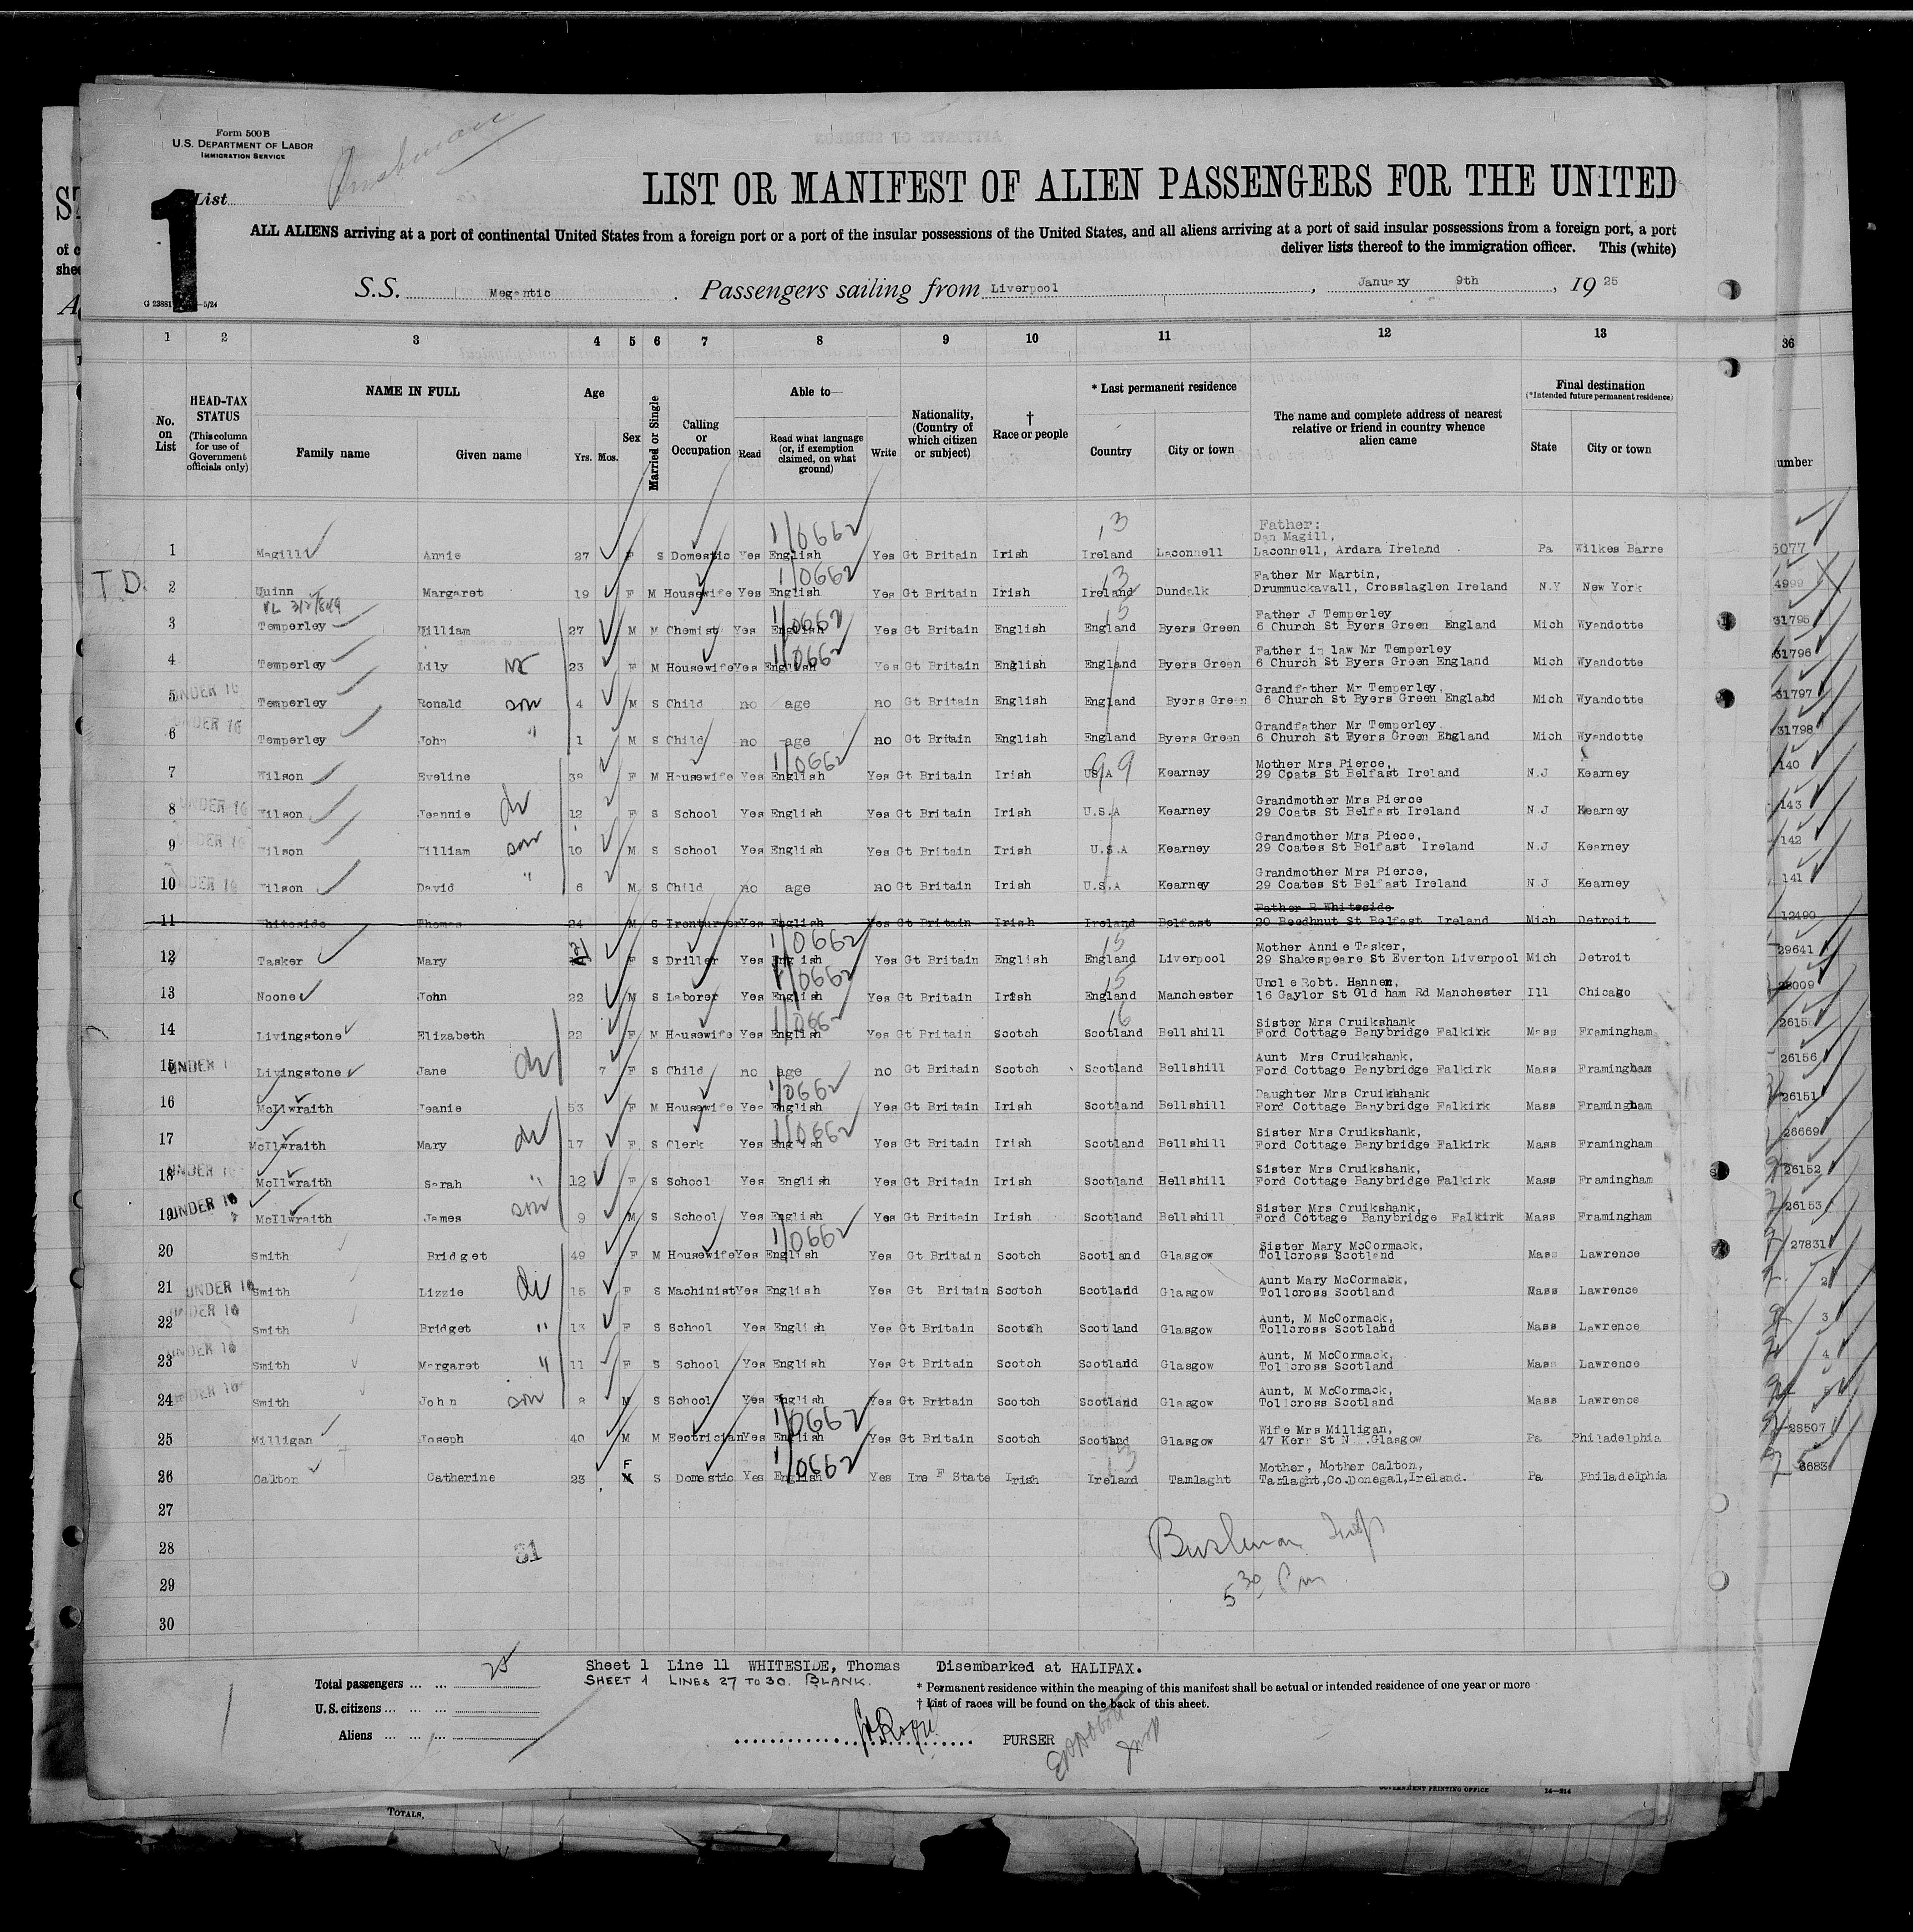 Form 500 B
U.S. DEPARTMENT OF LABOR
IMMIGRATION SERVICE
List
1
LIST OR MANIFEST OF ALIEN PASSENGERS FOR THE UNITED
ALL ALIENS arriving at a port of continental United States from a foreign port or a port of the insular possessions of the United States, and all aliens arriving at a port of said insular possessions from a foreign port, a port
deliver lists thereof to the immigration officer. This (white)
S.S. Megantic Passengers sailing from Liverpool, January 9th, 1925
1 2 3 4 5 6 7 8 9 10 11 12 13 36
No. on List
HEAD-TAX STATUS (This column for use of Government officials only)
NAME IN FULL Family name Given name
Age Yrs. Mos.
Sex
Married or Single
Calling or Occupation
Able to— Read Read what language (or, if exemption claimed, on what ground) Write
Nationality, (Country of which citizen or subject)
† Race or people
* Last permanent residence Country City or town
The name and complete address of nearest relative or friend in country whence alien came
Final destination (*Intended future permanent residence) State City or town
umber
1/0662 13 Father: Dan Magill,
1 Magill Annie 27 F S Domestic Yes English Yes Gt Britain Irish Ireland Laconnell Laconnell, Ardara Ireland Pa Wilkes Barre 5077
T.D. 1/0662 13 Father Mr Martin,
2 Quinn Margaret 19 F M Housewife Yes English Yes Gt Britain Irish Ireland Dundalk Drummuckavall, Crosslaglen Ireland N.Y New York 4999
1/0662 13 Father J Temperley
3 Temperley William 27 M M Chemist Yes English Yes Gt Britain English England Byers Green 6 Church St Byers Green England Mich Wyandotte 31795
1/0662 Father in law Mr Temperley
4 Temperley Lily 23 F M Housewife Yes English Yes Gt Britain English England Byers Green 6 Church St Byers Green England Mich Wyandotte 31796
UNDER 16 Grandfather Mr Temperley,
5 Temperley Ronald son 4 M S Child no age no Gt Britain English England Byers Green 6 Church St Byers Green England Mich Wyandotte 31797
UNDER 16 Grandfather Mr Temperley
6 Temperley John " 1 M S Child no age no Gt Britain English England Byers Green 6 Church St Byers Green England Mich Wyandotte 31798
1/0662 99 Mother Mrs Pierce,
7 Wilson Eveline 38 F M Housewife Yes English Yes Gt Britain Irish USA Kearney 29 Coats St Belfast Ireland N.J Kearney 140
UNDER 16 Grandmother Mrs Pierce
8 Wilson Jeannie 12 F S School Yes English Yes Gt Britain Irish U.S.A Kearney 29 Coats St Belfast Ireland N.J Kearney 143
UNDER 16 Grandmother Mrs Piece,
9 Wilson William son 10 M S School Yes English Yes Gt Britain Irish U.S.A Kearney 29 Coates St Belfast Ireland N.J Kearney 142
UNDER 16 Grandmother Mrs Pierce,
10 Wilson David " 6 M S Child no age no Gt Britain Irish U.S.A Kearney 29 Coates St Belfast Ireland N.J Kearney 141
Father R Whiteside
11 Whiteside Thomas 24 M S Ironturner Yes English Yes Gt Britain Irish Ireland Belfast 20 Beedhnut St Belfast Ireland Mich Detroit 12499
1/0662 Mother Annie Tasker,
12 Tasker Mary 21 F S Driller Yes English Yes Gt Britain English England Liverpool 29 Shakespeare St Everton Liverpool Mich Detroit 29641
1/0662 Uncle Robt. Hannen,
13 Noone John 22 M S Laborer Yes English Yes Gt Britain Irish England Manchester 16 Gaylor St Old ham Rd Manchester Ill Chicago
1/0662 16 Sister Mrs Cruikshank
14 Livingstone Elizabeth 22 F M Housewife Yes English Yes Gt Britain Scotch Scotland Bellshill Ford Cottage Banybridge Falkirk Mass Framingham
UNDER 1 Aunt Mrs Cruikshank,
15 Livingstone Jane 7 F S Child no age no Gt Britain Scotch Scotland Bellshill Ford Cottage Banybridge Falkirk Mass Framingham 26156
1/0662 Daughter Mrs Cruikshank
16 McIlwraith Jeanie 53 F M Housewife Yes English Yes Gt Britain Irish Scotland Bellshill Ford Cottage Banybridge Falkirk Mass Framingham 26151
1/0662 Sister Mrs Cruikshank,
17 McIlwraith Mary 17 F S Clerk Yes English Yes Gt Britain Irish Scotland Bellshill Ford Cottage Banybridge Falkirk Mass Framingham 26669
UNDER 16 Sister Mrs Cruikshank,
18 McIlwraith Sarah " 12 F S School Yes English Yes Gt Britain Irish Scotland Hellshill Ford Cottage Banybridge Falkirk Mass Framingham 26152
UNDER 16 Sister Mrs Cruikshank,
19 McIlwraith James son 9 M S School Yes English Yes Gt Britain Irish Scotland Bellshill Ford Cottage Banybridge Falkirk Mass Framingham 26153
1/0662 Sister Mary McCormack,
20 Smith Bridget 49 F M Housewife Yes English Yes Gt Britain Scotch Scotland Glasgow Tollcross Scotland Mass Lawrence 27831
UNDER 16 Aunt Mary McCormack,
21 Smith Lizzie 15 F S Machinist Yes English Yes Gt Britain Scotch Scotland Glasgow Tollcross Scotland Mass Lawrence 2
UNDER 16 Aunt, M McCormack,
22 Smith Bridget " 13 F S School Yes English Yes Gt Britain Scotch Scotland Glasgow Tollcross Scotland Mass Lawrence 3
UNDER 16 Aunt, M McCormack,
23 Smith Margaret " 11 F S School Yes English Yes Gt Britain Scotch Scotland Glasgow Tollcross Scotland Mass Lawrence 4
UNDER 16 Aunt, M McCormack,
24 Smith John son 8 M S School Yes English Yes Gt Britain Scotch Scotland Glasgow Tollcross Scotland Mass Lawrence
1/0662 Wife Mrs Milligan,
25 Milligan Joseph 40 M M Eectrician Yes English Yes Gt Britain Scotch Scotland Glasgow 47 Kerr St N .Glasgow Pa Philadelphia 28507
1/0662 F 13 Mother, Mother Calton,
26 Calton Catherine 23 S Domestic Yes English Yes Ire F State Irish Ireland Tamlaght Tamlaght,Co.Donegal,Ireland. Pa Philadelphia 6683
27
28 31
29 5 30 Pm
30
Sheet 1 Line 11 WHITESIDE, Thomas Disembarked at HALIFAX.
SHEET 1 LINES 27 TO 30. BLANK.
Total passengers ... ... 25
U.S. citizens ... ... ...
Aliens ... ... ...
* Permanent residence within the meaning of this manifest shall be actual or intended residence of one year or more
† List of races will be found on the back of this sheet.
PURSER
GOVERNMENT PRINTING OFFICE 14—214
TOTALS.